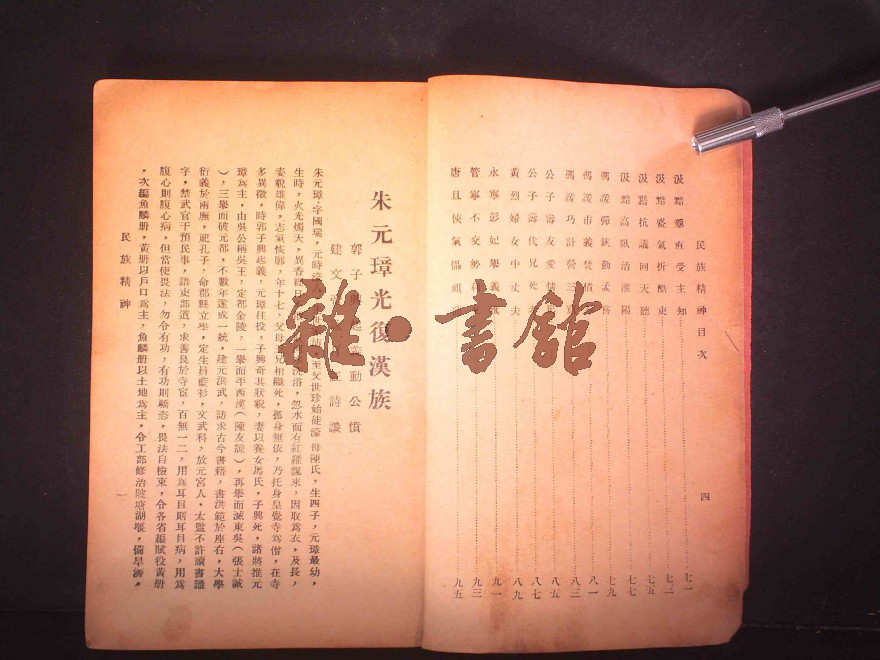 民族精神目次
四
汲黯戇直受主知 七一
汲黯盛氣折酷吏 七三
汲黯抗議回天聽 七五
汲黯高臥治淮陽 七七
馮諼彈鋏動孟嘗 七九
馮諼市義焚債 八一
馮諼巧計營三 八三
公子壽友愛情 八五
公子壽代兄死 八七
黃烈婦女中丈夫 八九
永寧彭妃舉義 九一
管寧不交勢 九三
唐且俠氣懾 九五
雜·書館
朱元璋光復漢族
郭子興起義動公憤
建文 詩讖
朱元璋，字國瑞，元時 文世珍始徙濠 母陳氏，生四子，元璋最幼，
生時，火光燭天，異香 浴，忽水面有紅羅飄來，因取爲衣，及長，
姿貌雄偉，志氣恢廓，年十七，父母 兄相繼死，孤身無依，乃托身皇覺寺爲僧，在寺
多異徵，時郭子興起義，元璋往投，子興奇其狀貌，妻以養女馬氏，子興死，諸將推元
璋爲主，由吳公稱吳王，定都金陵，一舉而平西漢（陳友諒），再舉而滅東吳（張士誠
），三舉而破元都，不數年遂成一統，建元洪武，訪求古今書籍，書洪範於座右，大學
衍義於兩廡，祀孔子，命郡縣立學，定生員藍衫，文武科，放元宮人，太監不許讀書識
字，禁武官干預民事，語東部道，求善良於寺宦，百無一二，用爲耳目則耳目病，用爲
腹心則腹心病，但當使畏法，勿令有功，有功則驕恣，畏法自檢束，令各省編賦役黃册
，次編魚麟册，黃册以戶口爲主，魚麟册以土地爲主，令工部修治陂塘湖堰，備旱澇，
民族精神
一